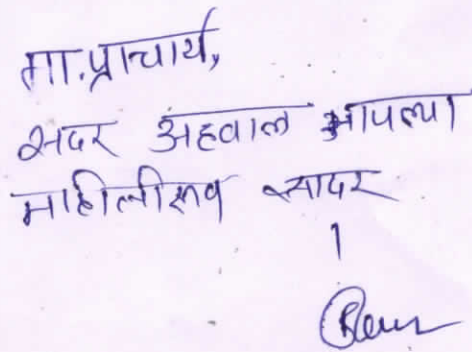 मा.प्राचार्य,
सदर अहवाल आपल्या
माहीतीस्तव सादर
।